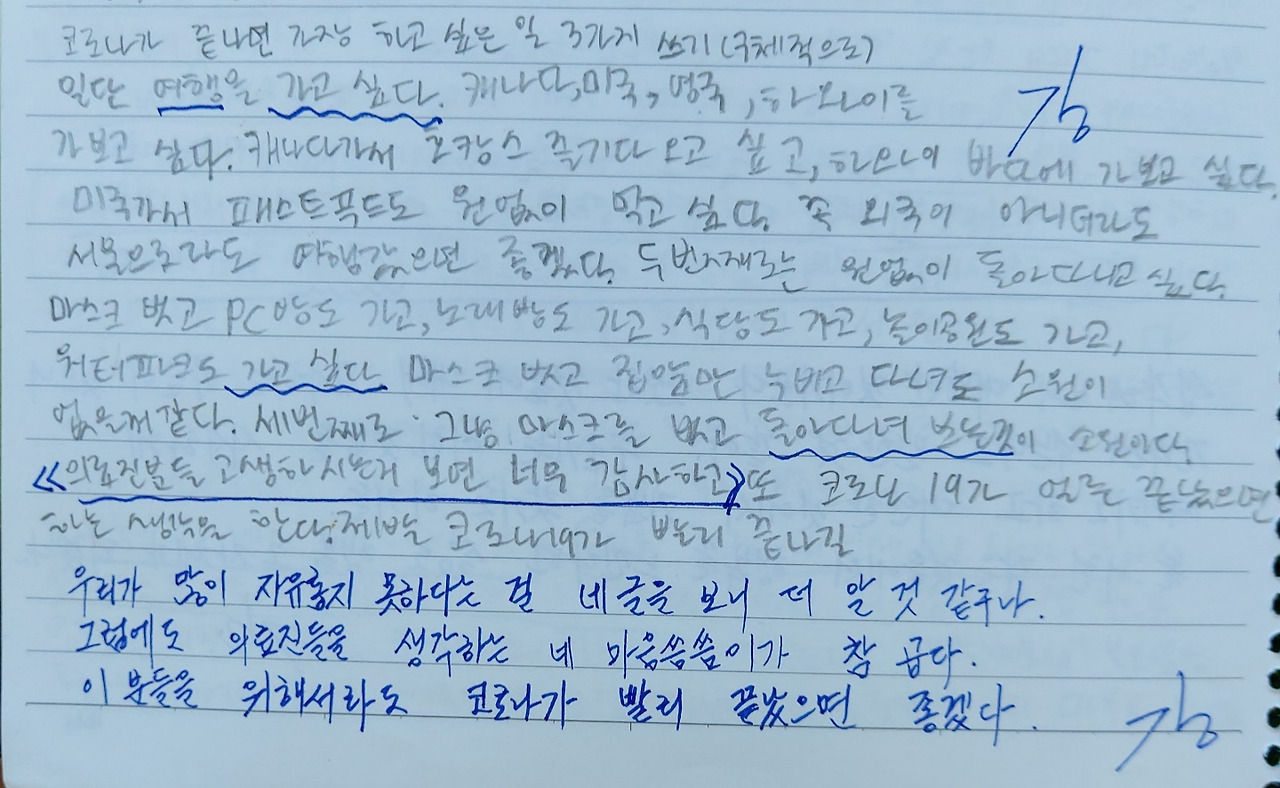 코로나가 끝나면 가장 하고 싶은 일 3가지 쓰기(구체적으로)
일단 여행을 가고 싶다. 캐나다,미국, 영국, 하와이를
가보고 싶다. 캐나다가서 호캉스 즐기다 오고 싶고, 하와이 바다에 가보고 싶다.
미국가서 패스트푸드도 원없이 먹고 싶다. 꼭 외국이 아니더라도
서울으로라도 여행갔으면 좋겠다. 두번째로는 원없이 돌아다니고 싶다.
마스크 벗고 PC방도 가고, 노래방도 가고, 식당도 가고, 놀이공원도 가고,
워터파크도 가고 싶다 마스크 벗고 집앞만 누비고 다녀도 소원이
없을꺼 같다. 세번째로 그냥 마스크를 벗고 돌아다녀 보는것이 소원이다.
《의료진분들 고생하시는거 보면 너무 감사하고》또 코로나 19가 얼른 끝났으면
하는 생각을 한다. 제발 코로나19가 빨리 끝나길
우리가 많이 자유롭지 못하다는 걸 네 글을 보니 더 알 것 같구나.
그럼에도 의료진들을 생각하는 네 마음씀씀이가 참 곱다.
이 분들을 위해서라도 코로나가 빨리 끝났으면 좋겠다.